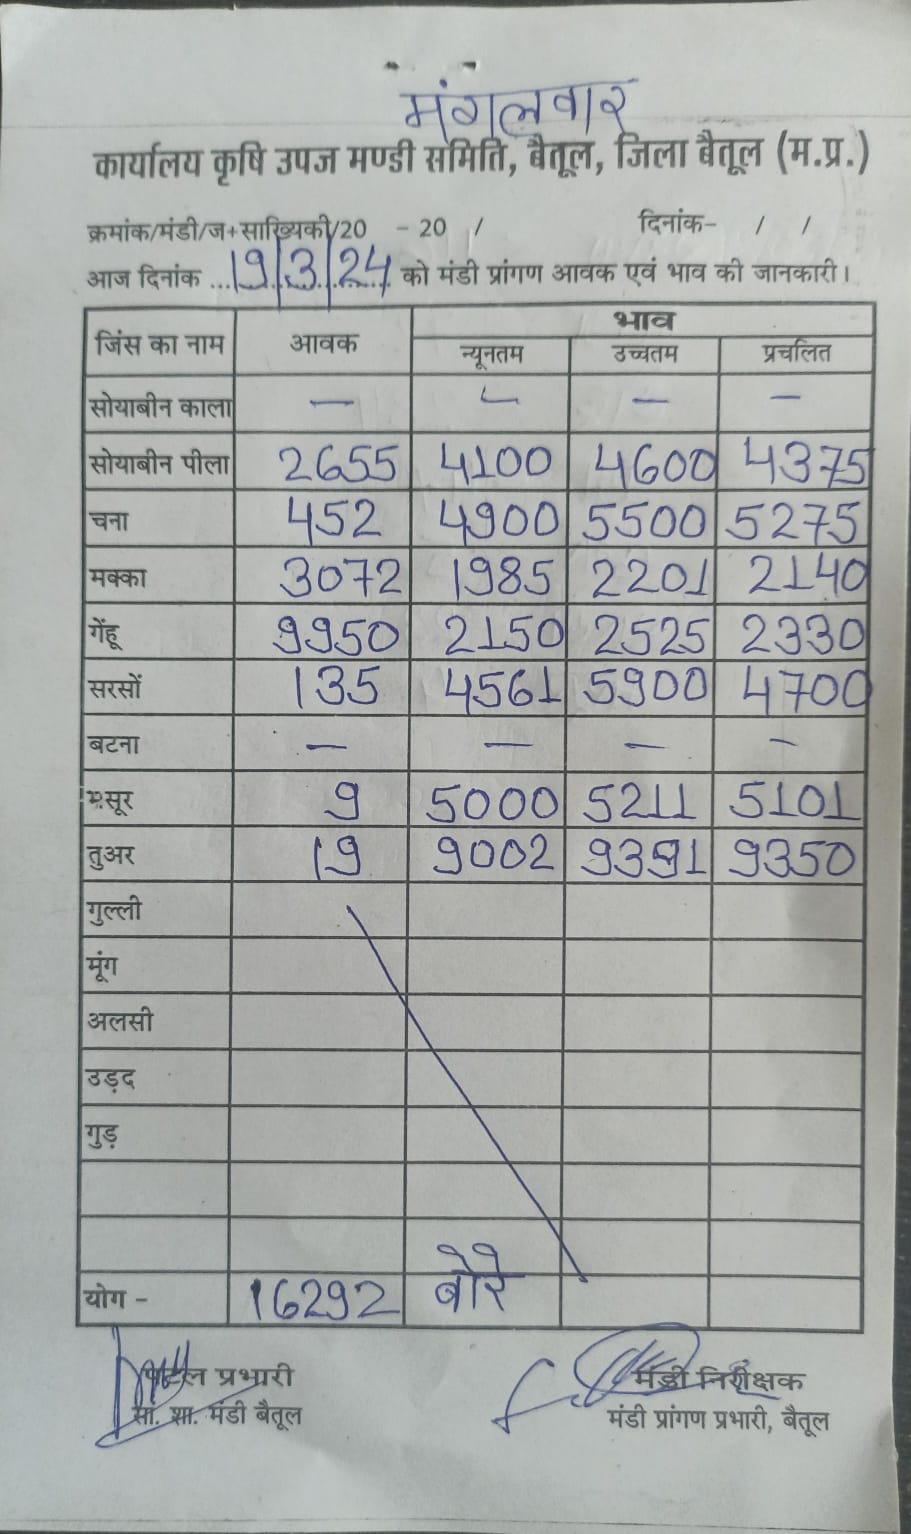 मंगलवार
कार्यालय कृषि उपज मण्डी समिति, बैतूल, जिला बैतूल (म.प्र.)
क्रमांक/मंडी/ज+साख्यिकी/20 - 20 / दिनांक- / /
आज दिनांक ...19/3/24 को मंडी प्रांगण आवक एवं भाव की जानकारी।
जिंस का नाम आवक भाव
न्यूनतम उच्चतम प्रचलित
सोयाबीन काला — — — —
सोयाबीन पीला 2655 4100 4600 4375
चना 452 4900 5500 5275
मक्का 3072 1985 2201 2140
गेंहू 9950 2150 2525 2330
सरसों 135 4561 5900 4700
बटना — — — —
मसूर 9 5000 5211 5101
तुअर 19 9002 9391 9350
गुल्ली
मूंग
अलसी
उड़द
गुड़
योग - 16292 बोरे
पटल प्रभारी मंडी निरीक्षक
सां. शा. मंडी बैतूल मंडी प्रांगण प्रभारी, बैतूल